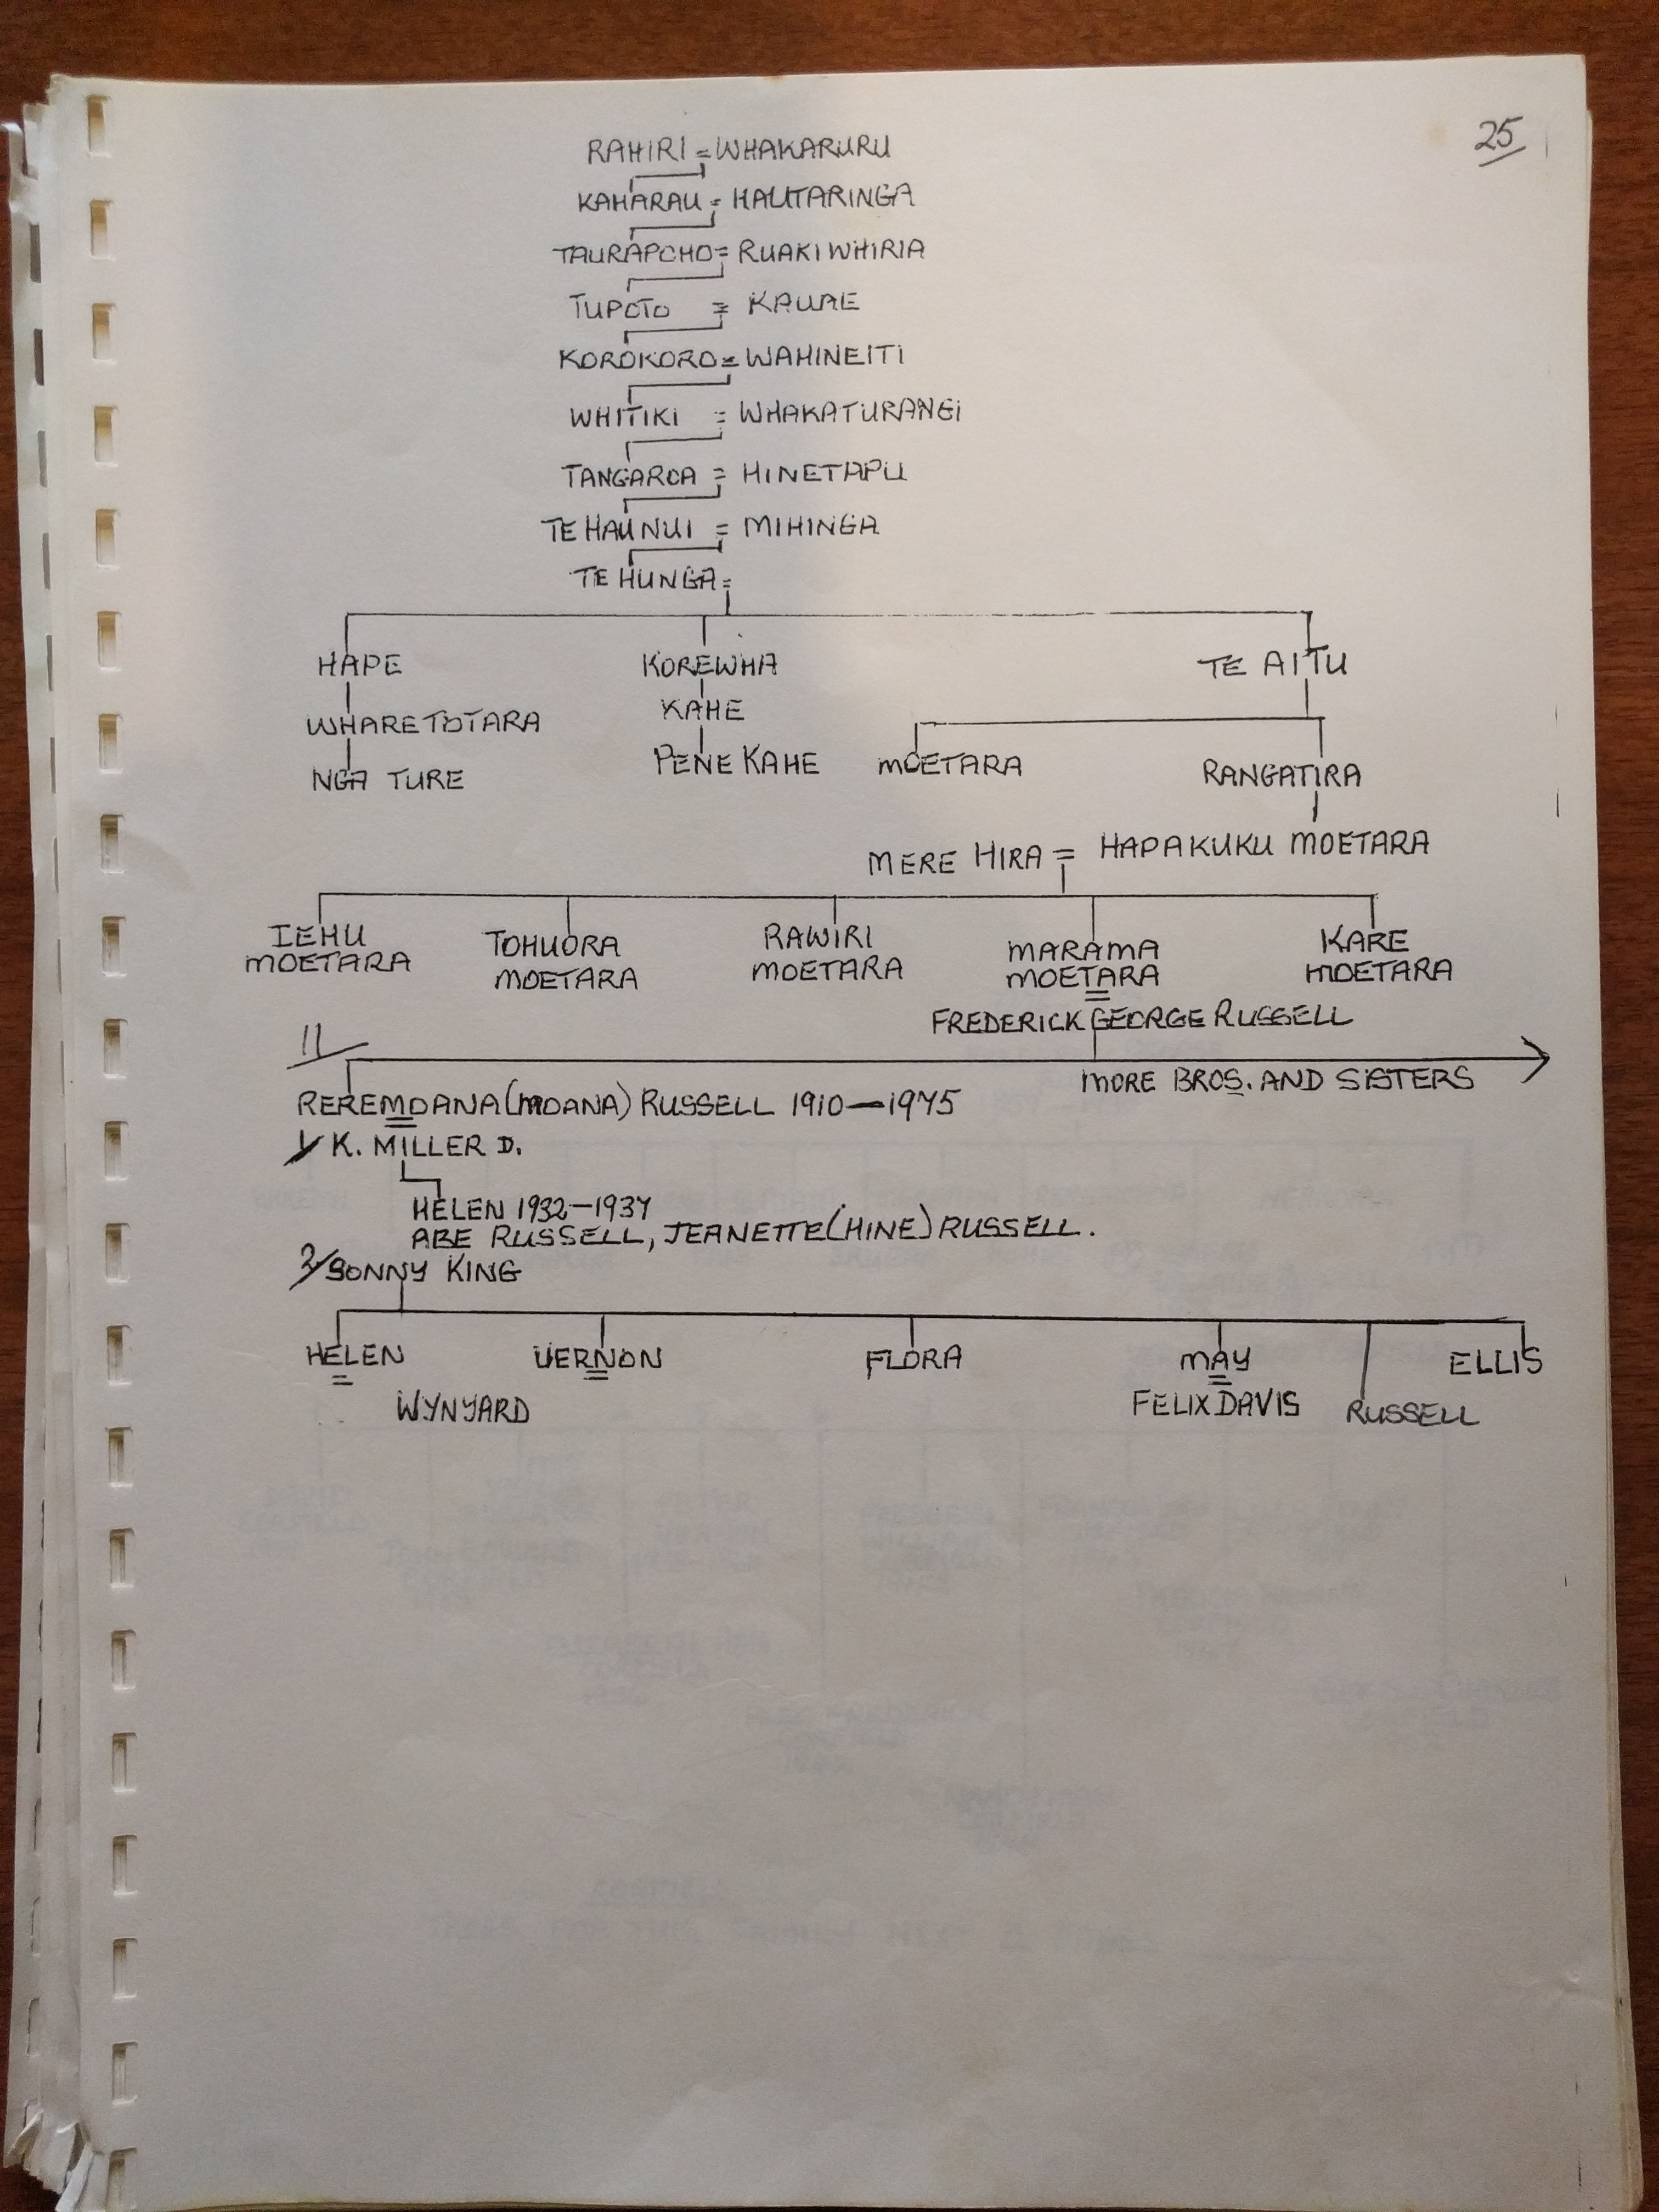 25
RAHIRI = WHAKARURU
KAHARAU = HAUTARINGA
TAURAPOHO = RUAKIWHIRIA
TUPOTO = KAUAE
KOROKORO = WAHINEITI
WHITIKI = WHAKATURANGI
TANGAROA = HINETAPU
TE HAUNUI = MIHINGA
TE HUNGA =
HAPE KOREWHA TE AITU
WHARETOTARA KAHE
NGA TURE PENE KAHE MOETARA RANGATIRA
MERE HIRA = HAPAKUKU MOETARA
IEHU TOHUORA RAWIRI MARAMA KARE
MOETARA MOETARA MOETARA MOETARA MOETARA
=
FREDERICK GEORGE RUSSELL
11
MORE BROS. AND SISTERS
REREMOANA (MOANA) RUSSELL 1910—1975
=
1/ K. MILLER D.
HELEN 1932—1937
ABE RUSSELL, JEANETTE (HINE) RUSSELL.
2/ SONNY KING
HELEN VERNON FLORA MAY ELLIS
= = =
WYNYARD FELIX DAVIS RUSSELL